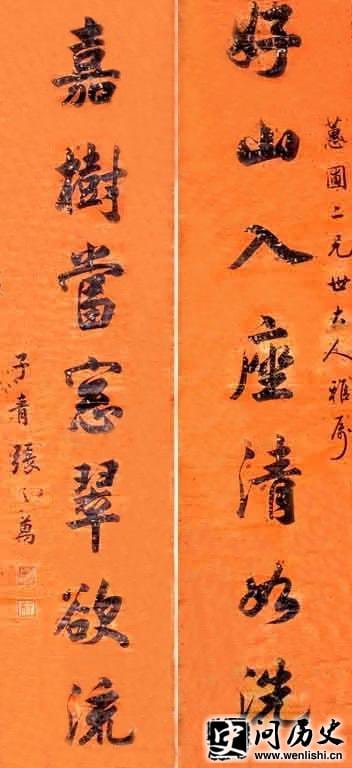 蕙圃二兄世大人雅屬
好山入座清如洗
嘉樹當窓翠欲流
子青張之萬
问历史
www.wenlishi.cn